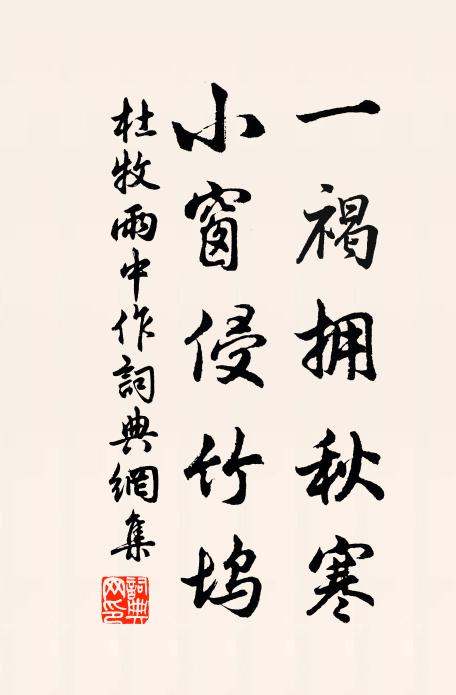 一褐拥秋寒
小窗侵竹坞
杜牧雨中作詞典網集
詞典网印